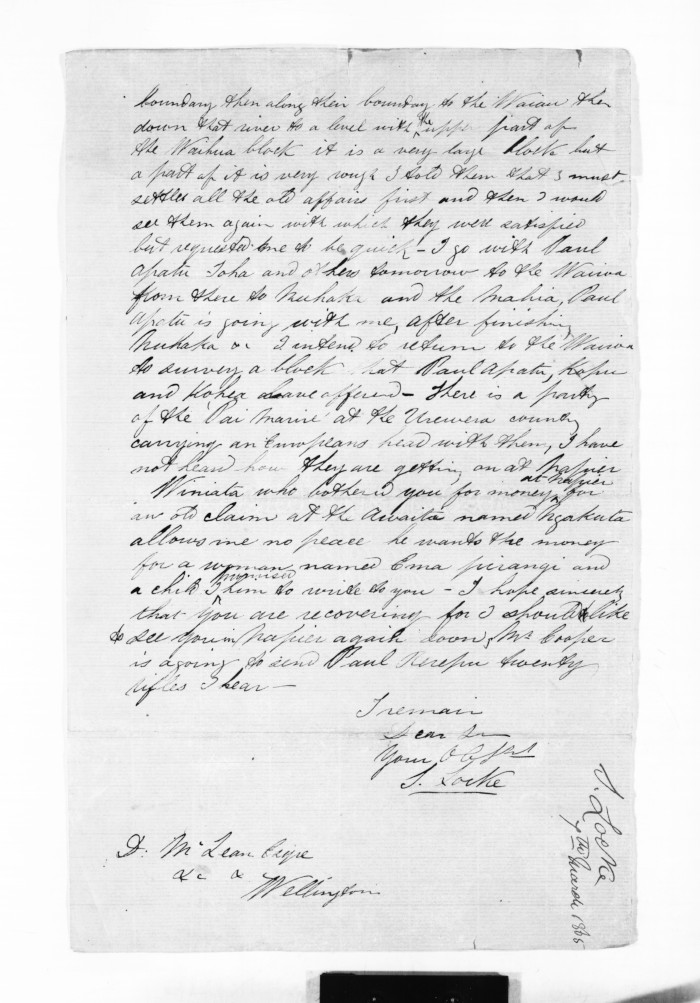 boundary then along their boundary to the Waiau then
down that river to a level with the upper part of
the Waihua block it is a very large block but
a part of it is very rough I told them that I must
settle all the old affairs first and then I would
see them again with which they were satisfied
but requested me to be quick! - I go with Paul
Apatu Toha and others tomorrow to the Wairoa
from there to Nuhaka and the Mahia, Paul
Apatu is going with me, after finishing
Nuhaka I intend to return to the Wairoa
to survey a block that Paul Apatu, Kopu
and have offered - There is a party
of the 'Pai Marire' at the Urewera country
carrying an Europeans head with them, I have
not heard how they are getting on at Napier
Winiata who bothered you for money at Napier for
an old claim at the Awaitu named Ngakuta
allows me no peace he wants the money
for a woman named Ema and
a child I promised him to write to you - I hope sincerely
that you are recovering for I should like
to see you in Napier again soon, Mr Cooper
is agoing to send Paul Rerepu twenty
rifles I hear -
I remain
Dear Sir
Your
S. Locke
D. McLean Esqre
&c &
Wellington
S. Locke
7th March 1865